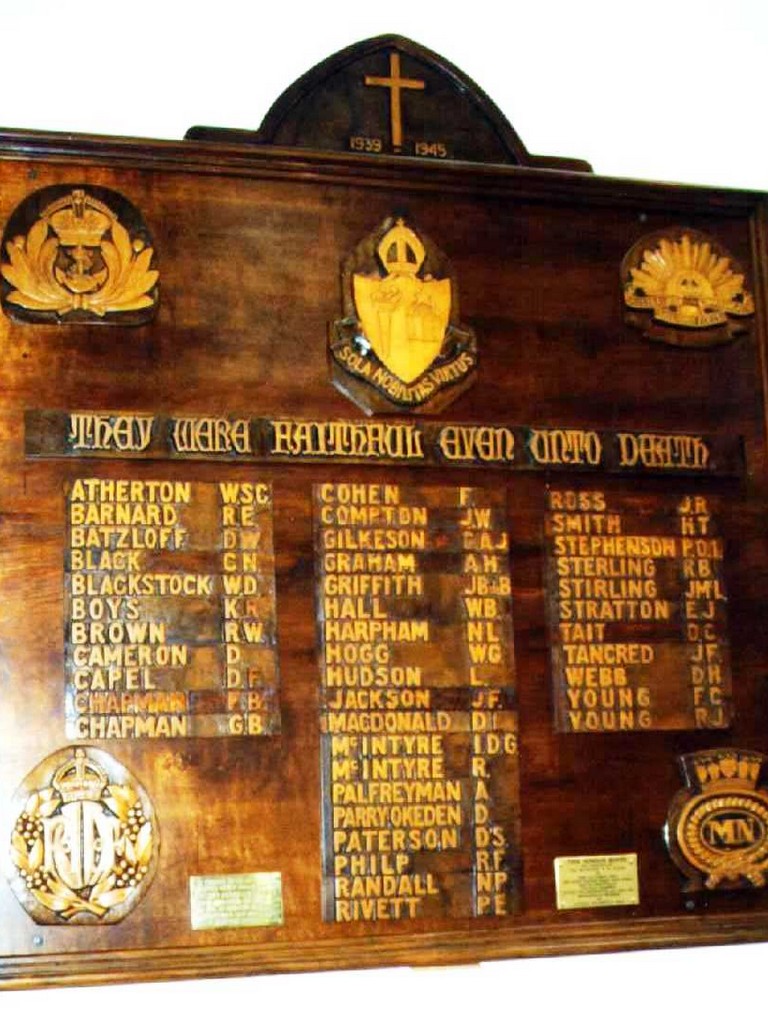 1939 - 1945
SOLA NOBILITAS VIRTUS
THEY WERE FAITHFUL EVEN UNTO DEATH
ATHERTON W.S.C.
BARNARD R.E.
BATZLOFF D.W.
BLACK C.N.
BLACKSTOCK W.D.
BOYS K.R.
BROWN R.W.
CAMERON D.
CAPEL D.F.
CHAPMAN F.B.
CHAPMAN G.B.
COHEN F.
COMPTON J.W.
GILKESON
GRAHAM A.H.
GRIFFITH J.B.B.
HALL W.B.
HARPHAM N.L.
HOGG W.G.
HUDSON L.
JACKSON J.F.
MACDONALD D.I.
McINTYRE I.D.G.
McINTYRE R.
PALFREYMAN A.
PARRY-OKEDEN D.
PATERSON D.S.
PHILP R.F.
RANDALL N.P.
RIVETT P.E.
ROSS J.R.
SMITH H.T.
STEPHENSON P.D.L.
STERLING R.B.
STIRLING J.M.L.
STRATTON E.J.
TAIT D.C.
TANCRED J.F.
WEBB D.H.
YOUNG F.C.
YOUNG R.J.
MN